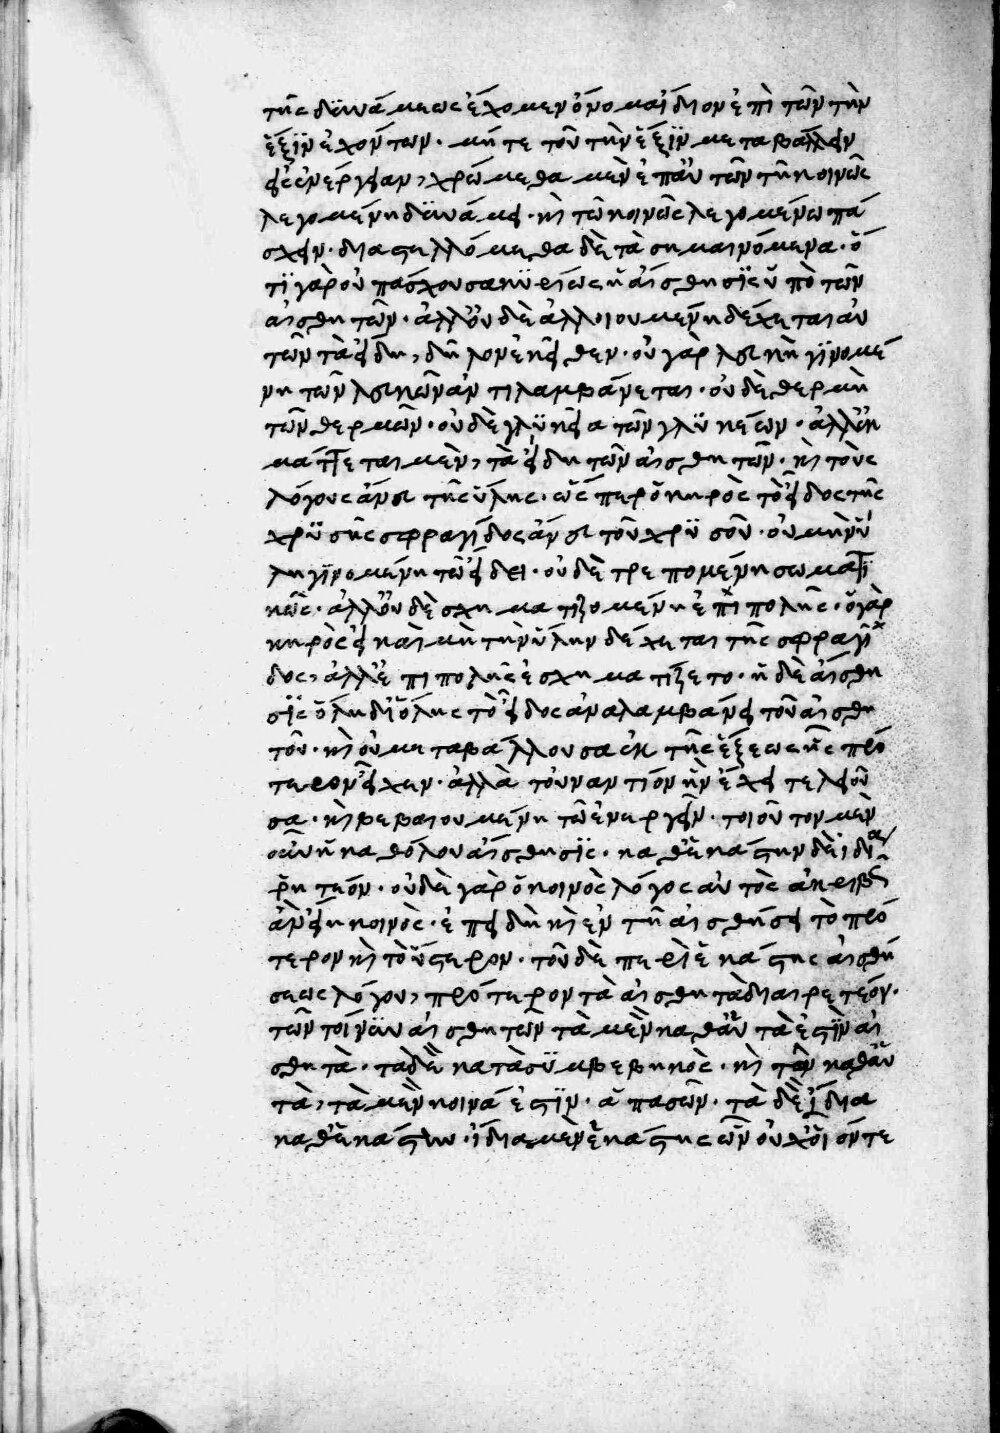 τῆς δυνάμεως ἔχομεν ὄνομα ἴδιον ἐπὶ τῶν τὴν
ἕξιν ἐχόντων· μήτε τοῦ τὴν ἕξιν μεταβάλλειν
εἰς ἐνέργειαν, χρώμεθα μὲν ἐπ' αὐτῶν τῆ κοινῶς
λεγομένη δυνάμει· καὶ τῶ κοινῶς λεγομένω πά
σχειν· διαστελλόμεθα δὲ τὰ σημαινόμενα· ὅ
τι γὰρ οὐ πάσχουσα κυρίως ἡ αἴσθησις ὑπὸ τῶν
αἰσθητῶν· ἀλλ' οὐδὲ ἀλλοιουμένη δέχεται αὐ
τῶν τὰ εἴδη, δῆλον ἐκεῖθεν· οὐ γὰρ λευκὴ γινομέ
νη τῶν λευκῶν ἀντιλαμβάνεται· οὐδὲ θερμὴ
τῶν θερμῶν· οὐδὲ γλυκεῖα τῶν γλυκέων· ἀλλ' ἐκ
μάττεται μὲν, τὰ εἴδη τῶν αἰσθητῶν· καὶ τοὺς
λόγους ἄνευ τῆς ὕλης· ὥσπερ ὁ κηρὸς τὸ εἶδος τῆς
χρυσῆς σφραγίδος ἄνευ τοῦ χρυσοῦ· οὐ μὴν ὕ
λη γινομένη τῶ εἴδει· οὐδὲ τρεπομένη σωματι
κῶς· ἀλλ' οὐδὲ σχηματιζομένη ἐπιπολῆς· ὁ γὰρ
κηρὸς εἰ καὶ μὴ τὴν ὕλην δέχεται τῆς σφραγί
δος, ἀλλ' ἐπιπολῆς ἐσχηματίζετο· ἡ δὲ αἴσθη
σις ὅλη δι' ὅλης τὸ εἶδος ἀναλαμβάνει τοῦ αἰσθη
τοῦ· καὶ οὐ μεταβάλλουσα ἐκ τῆς ἕξεως ἧς πρό
τερον εἶχεν· ἀλλὰ τοὐναντίον ἣν ἔχει τελειοῦ
σα· καὶ βεβαιουμένη τῶ ἐνεργεῖν· τοιοῦτον μὲν
οὖν ἡ καθόλου αἴσθησις· καθ' ἑκάστην δὲ ἰδίᾳ
ῥητέον· οὐδὲ γὰρ ὁ κοινὸς λόγος αὐτὸς ἀκριβῶς
ἂν εἴη κοινὸς· ἐπειδὴ καὶ ἐν τῆ αἰσθήσει τὸ πρό
τερον καὶ τὸ ὕστερον· τοῦ δὲ περὶ ἑκάστης αἰσθή
σεως λόγου, πρότερον τὰ αἰσθητὰ διαιρετέον·
τῶν τοίνυν αἰσθητῶν τὰ μὲν καθ' αὑτὰ ἐστὶν αἰ
σθητὰ· τὰ δὲ κατὰ συμβεβηκὸς· καὶ τῶν καθ' αὑ
τὰ, τὰ μὲν κοινά ἐστιν· ἁπασῶν· τὰ δὲ ἴδια
καθ' ἑκάστην· ἴδια μὲν ἑκάστης ὧν οὐχ οἷόντε